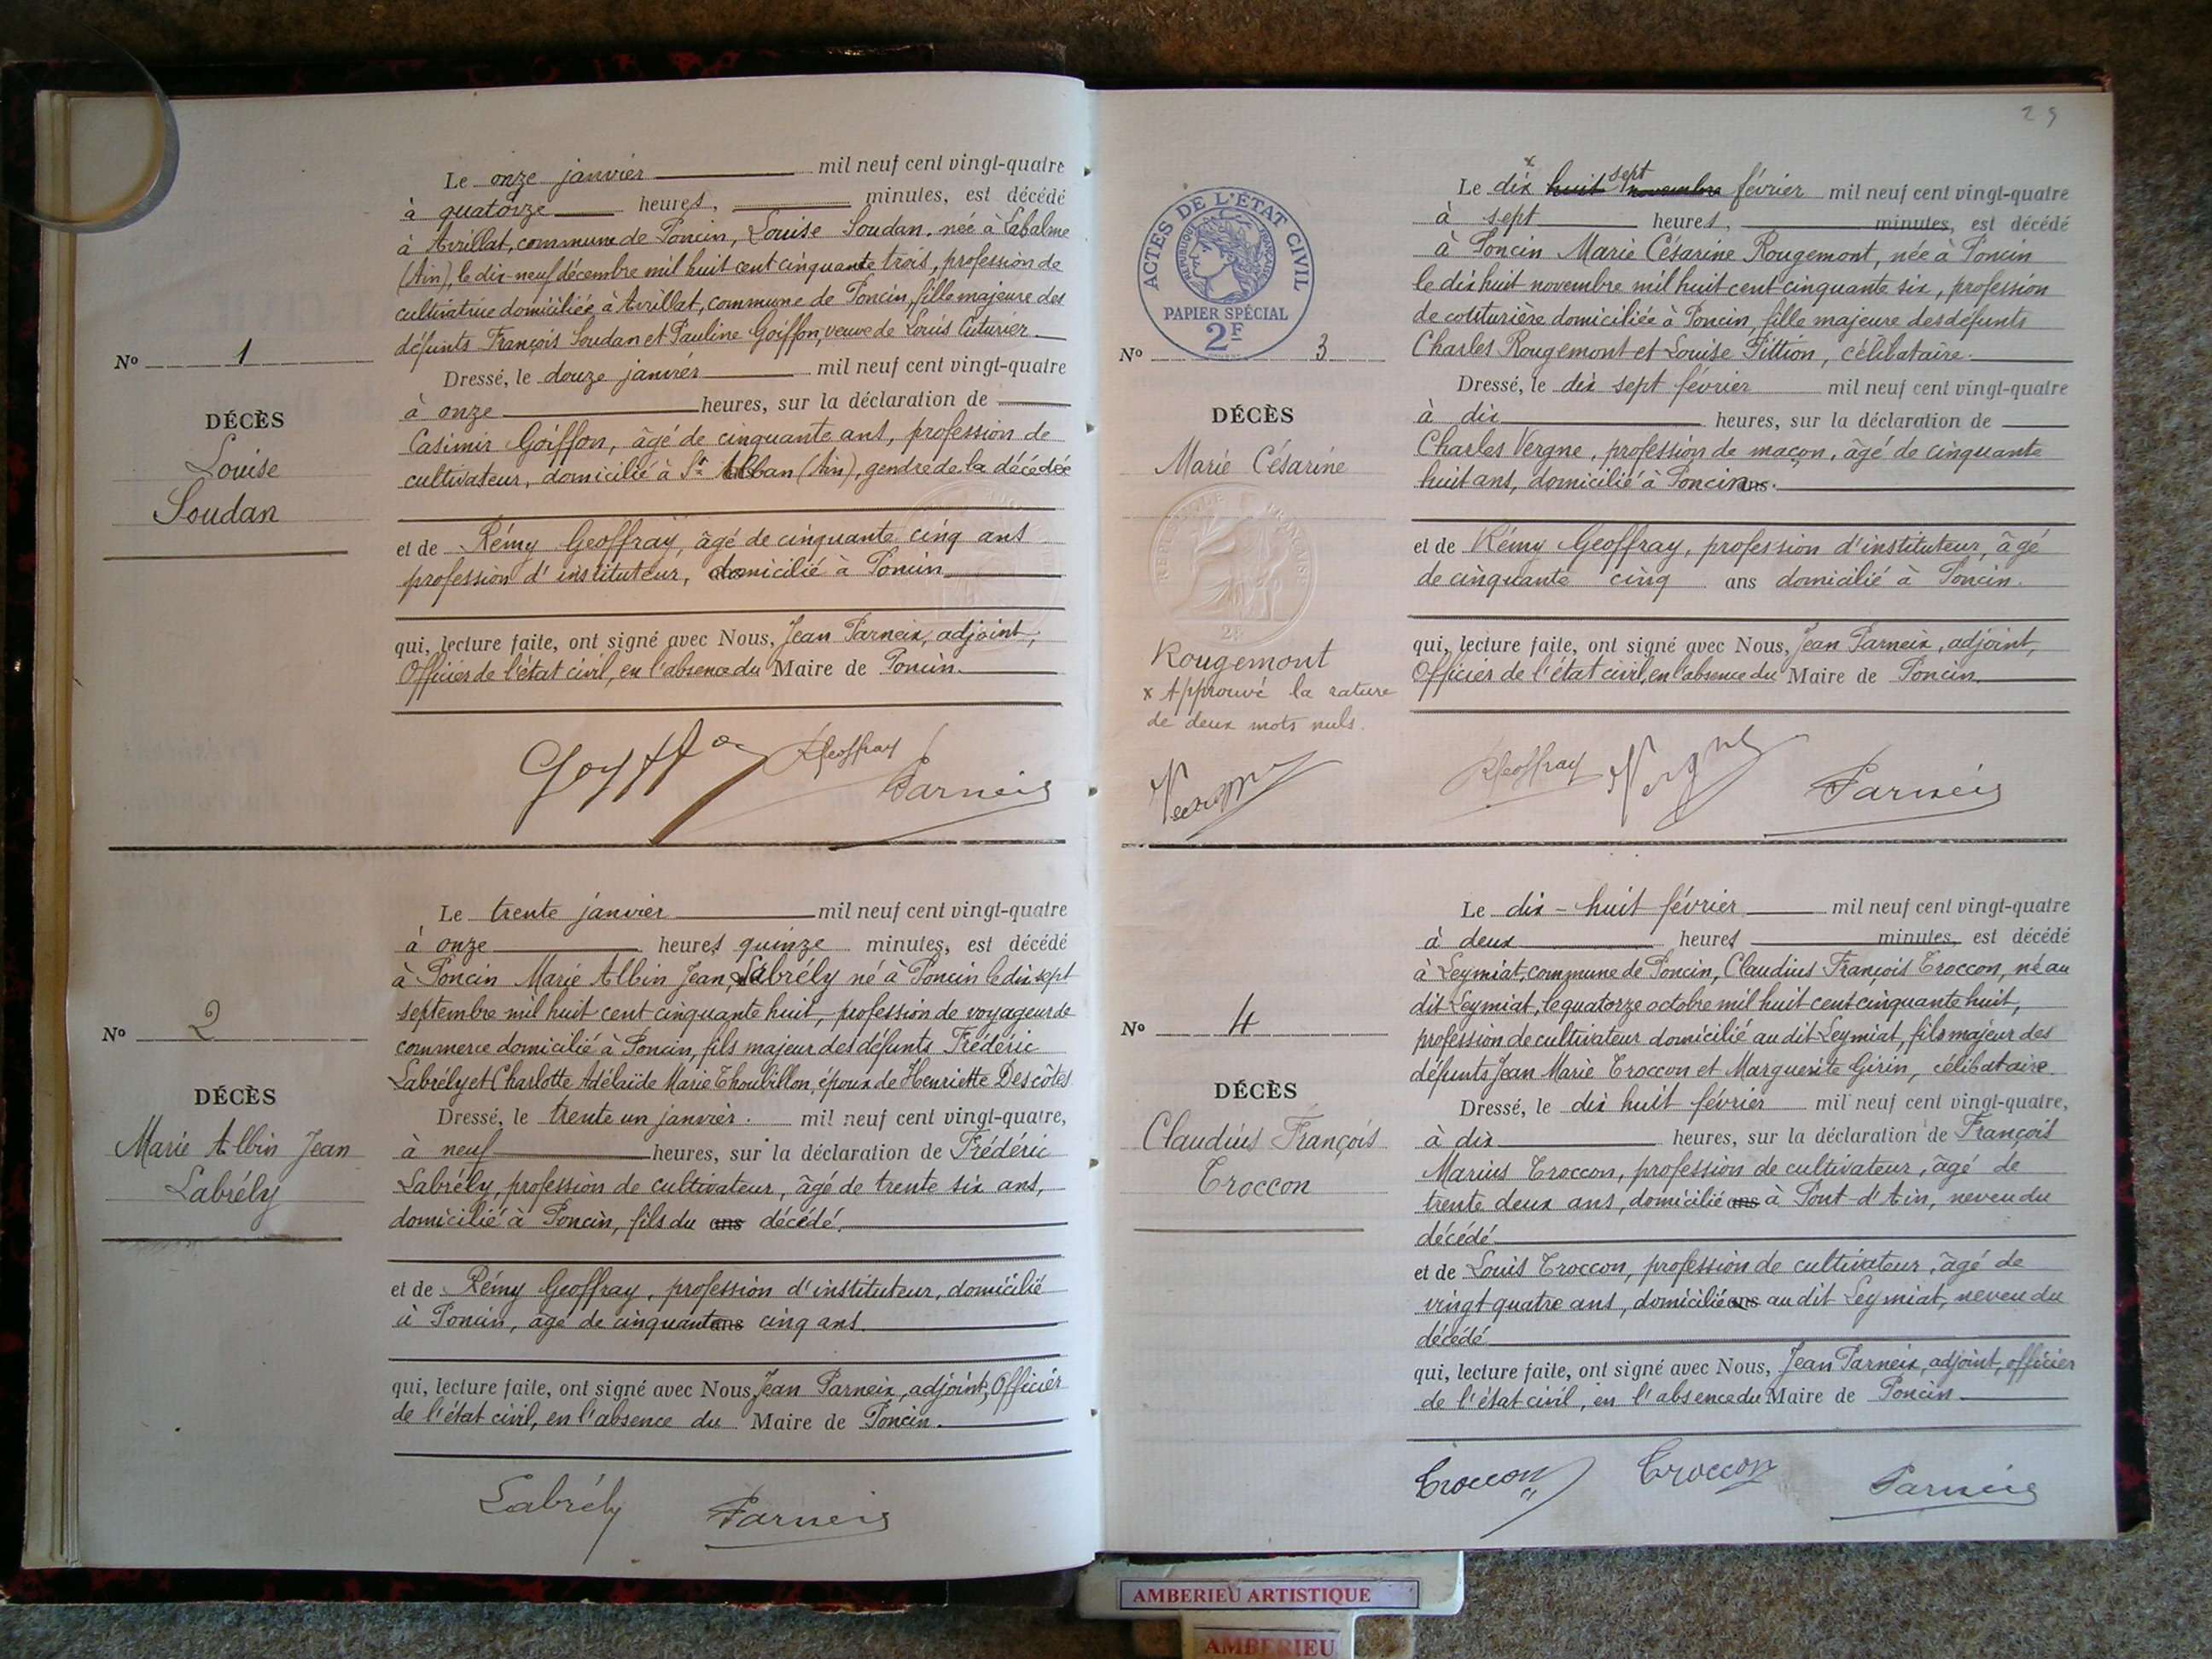 Le onze janvier mil neuf cent vingt-quatre
à quatorze heures, minutes, est décédé
à Avrillat, commune de Poncin, Louise Soudan, née à Labalme
(Ain), le dix-neuf décembre mil huit cent cinquante trois, profession de
cultivatrice domiciliée à Avrillat, commune de Poncin, fille majeure des
défunts François Soudan et Pauline Goiffon, veuve de Louis Cuturier
Nº 1
Dressé, le douze janvier mil neuf cent vingt-quatre
à onze heures, sur la déclaration de
DÉCÈS
Louise
Soudan
Casimir Goiffon, âgé de cinquante ans, profession de
cultivateur, domicilié à St Alban (Ain), gendre de la décédée
et de Rémy Geoffray, âgé de cinquante cinq ans
profession d'instituteur, domicilié à Poncin
qui, lecture faite, ont signé avec Nous, Jean Parneix, adjoint,
Officier de l'état civil, en l'absence du Maire de Poncin.
RGeoffray
Parneix
Le trente janvier mil neuf cent vingt-quatre
à onze heures quinze minutes, est décédé
à Poncin Marie Albin Jean Labrély né à Poncin le dix sept
septembre mil huit cent cinquante huit, profession de voyageur de
commerce domicilié à Poncin, fils majeur des défunts Frédéric
Labrély et Charlotte Adélaïde Marie Thoubillon, époux de Henriette Descôtes
Nº 2
DÉCÈS
Marie Albin Jean
Labrély
Dressé, le trente un janvier. mil neuf cent vingt-quatre,
à neuf heures, sur la déclaration de Frédéric
Labrély, profession de cultivateur, âgé de trente six ans,
domicilié à Poncin, fils du ans décédé.
et de Rémy Geoffray, profession d'instituteur, domicilié
à Poncin, âgé de cinquante ans cinq ans.
qui, lecture faite, ont signé avec Nous, Jean Parneix, adjoint, Officier
de l'état civil, en l'absence du Maire de Poncin.
Labrély
Parneix
29
ACTES DE L'ÉTAT CIVIL
RÉPUBLIQUE FRANÇAISE
PAPIER SPÉCIAL
2F
Le dix huit sept novembre février mil neuf cent vingt-quatre
à sept heures, minutes, est décédé
à Poncin Marie Césarine Rougemont, née à Poncin
le dix huit novembre mil huit cent cinquante six, profession
de couturière domiciliée à Poncin, fille majeure des défunts
Charles Rougemont et Louise Pittion, célibataire.
Nº 3
DÉCÈS
Marie Césarine
Rougemont
x Approuvé la rature
de deux mots nuls.
Vergne
Dressé, le dix sept février mil neuf cent vingt-quatre
à dix heures, sur la déclaration de
Charles Vergne, profession de maçon, âgé de cinquante
huit ans, domicilié à Poncin ans.
et de Rémy Geoffray, profession d'instituteur, âgé
de cinquante cinq ans domicilié à Poncin.
qui, lecture faite, ont signé avec Nous, Jean Parneix, adjoint,
Officier de l'état civil, en l'absence du Maire de Poncin.
RGeoffray
Vergne
Parneix
Le dix-huit février mil neuf cent vingt-quatre
à deux heures minutes, est décédé
à Leymiat, commune de Poncin, Claudius François Croccon, né au
dit Leymiat, le quatorze octobre mil huit cent cinquante huit,
profession de cultivateur domicilié au dit Leymiat, fils majeur des
défunts Jean Marie Croccon et Marguerite Girin, célibataire
Nº 4
DÉCÈS
Claudius François
Croccon
Dressé, le dix huit février mil neuf cent vingt-quatre,
à dix heures, sur la déclaration de François
Marius Croccon, profession de cultivateur, âgé de
trente deux ans, domicilié ans à Pont-d'Ain, neveu du
décédé
et de Louis Croccon, profession de cultivateur, âgé de
vingt quatre ans, domicilié ans au dit Leymiat, neveu du
décédé
qui, lecture faite, ont signé avec Nous, Jean Parneix, adjoint, officier
de l'état civil, en l'absence du Maire de Poncin
Croccon
Croccon
Parneix
AMBERIEU ARTISTIQUE
AMBERIEU